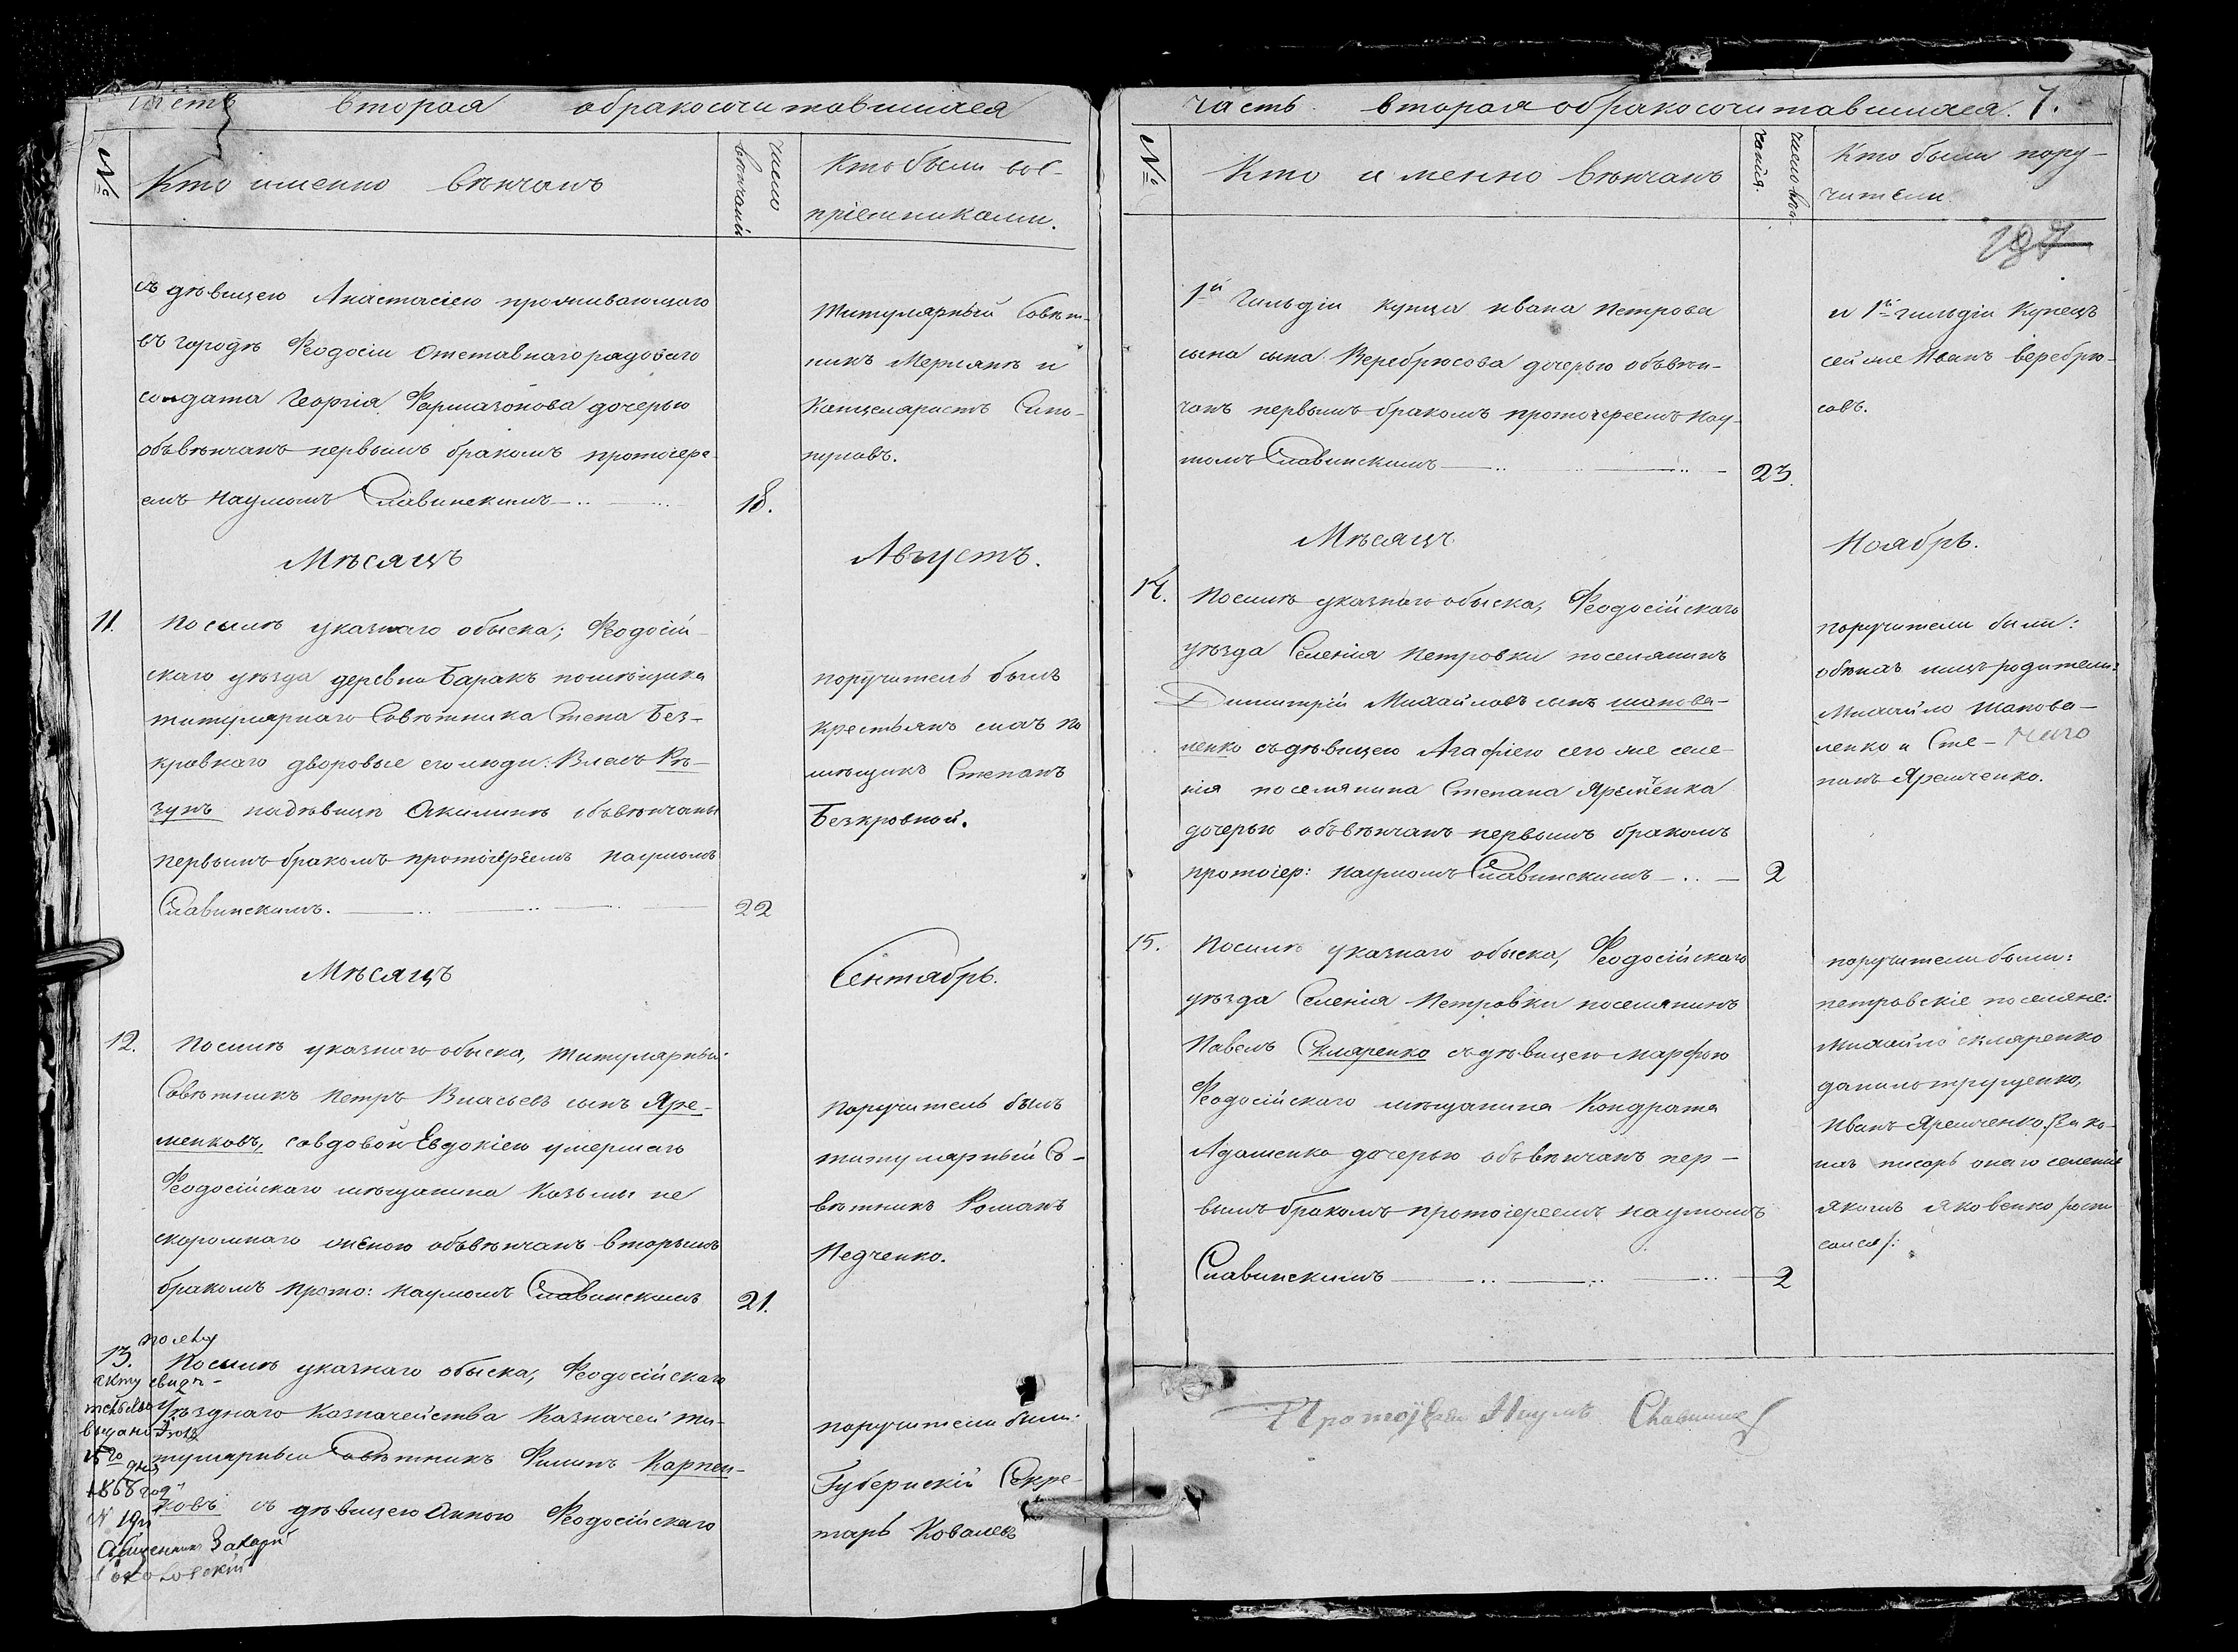 Часть вторая обракосочитавшиася
№ Кто именно вѣнчанъ
число вѣнчаній
Кто были вос-
пріемниками.
съ дѣвицею Анастасіею проживающаго
въ городѣ Ѳеодосіи отставнаго рядоваго
солдата Георгія Фармазонова дочерью
объвѣнчанъ первымъ бракомъ протоіере-
емъ Наумомъ Славинскимъ
18.
титулярный Совѣт-
никъ Мерианъ и
Канцеляристъ Сино-
пуловъ.
Мѣсяцъ Августъ.
11. Посилѣ указнаго обыска; Ѳеодосій-
скаго уѣзда деревни Баракъ помѣщика
титулярнаго Совѣтника Степа Без-
кровнаго дворовые его люди: Власъ Рѣ-
зунъ надѣвицѣ Акилинѣ объвѣнчаны
первымъ бракомъ протоіереемъ Наумомъ
Славинскимъ.
22
поручитель былъ
крестьянъ сихъ по
мѣщикъ Степанъ
Безкровной.
Мѣсяцъ Сентябрь.
12. Посилѣ указнаго обыска, титулярный
Совѣтникъ Петръ Власьевъ сынъ Яре-
менковъ, совдовой Евдокіею умершаго
Ѳеодосійскаго мѣщанина Козьмы не
скоромнаго женою объвѣнчанъ вторымъ
бракомъ прото: Наумомъ Славинскимъ
21.
Поручитель былъ
титулярный Со-
вѣтникъ Романъ
Педченко.
13. Посилѣ указнаго обыска, Ѳеодосійскаго
Уѣзднаго Казначейства Казначей ти-
тулярный Совѣтникъ Филипъ Карпен-
ковъ съ дѣвицею Анною Ѳеодосійскаго
по сему
акту свидѣ-
1868 год
Священникъ Захарій
поручители были:
Губернскій Секре-
тарь Ковалевъ
часть вторая обракосочитавшиася. 7.
№ Кто именно вѣнчанъ
число вѣн-
чанія.
Кто были пору-
чители.
1й Гильдіи купца Ивана Петрова
сына сына Веребрюсова дочерью объвѣн-
чанъ первымъ бракомъ протоіереемъ Нау-
момъ Славинскимъ
23.
и 1й гильдіи Купецъ
сей же Иванъ Веребрю-
совъ.
Мѣсяцъ Ноябрь.
14. Посилѣ указнаго обыска, Ѳеодосійскаго
уѣзда Селенія Петровки поселянинъ
Димитрій Михайловъ сынъ Шапова-
ленко съ дѣвицею Агафіею сего же селе-
нія поселянина Степана Яремченка
дочерью объвѣнчанъ первымъ бракомъ
протоіер: Наумомъ Славинскимъ
2
поручители были:
обѣихъ лицъ родители:
Михайло Шапова-
ленко и Сте-
панъ Яремченко.
15. Посилѣ указнаго обыска, Ѳеодосійскаго
уѣзда Селенія Петровки поселянинъ
Павелъ Скляренко съ дѣвицею Марфою
Ѳеодосійскаго мѣщанина Кондрата
Адаменка дочерью объвѣнчанъ пер-
вымъ бракомъ протоіереемъ Наумомъ
Славинскимъ
2
поручители были:
петровскіе поселяне:
Михайло Скляренко
данило трущенко,
Иванъ Яремченко
писарь онаго селенія
Якимъ Яковенко
Протоіерей Наумъ Славинс